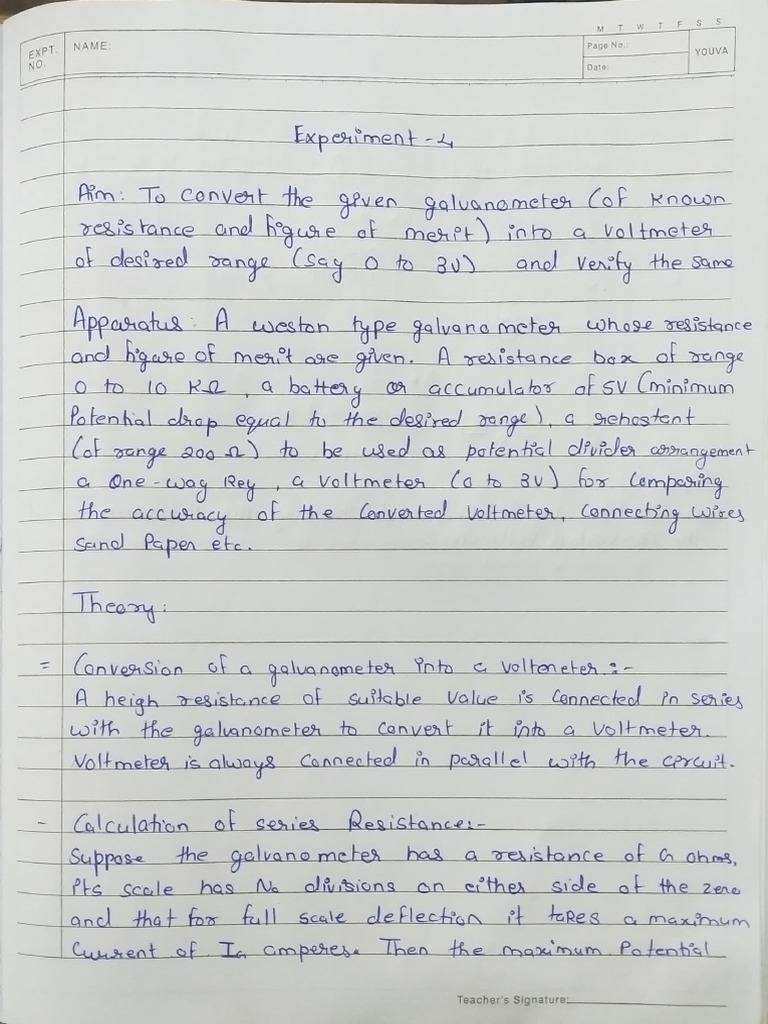 M T W T F S S
EXPT. NO.
NAME:
Page No.:
YOUVA
Date:
Experiment - 4
Aim: To convert the given galvanometer (of known
resistance and figure of merit) into a voltmeter
of desired range (say 0 to 3v) and verify the same
Apparatus: A weston type galvanometer whose resistance
and figure of merit are given. A resistance box of range
0 to 10 KΩ, a battery or accumulator of 5V (minimum
Potential drop equal to the desired range), a rehostent
(of range 200 Ω) to be used as potential divider arrangement
a One-way Key, a voltmeter (0 to 3v) for Comparing
the accuracy of the Converted Voltmeter, Connecting wires
sand Paper etc.
Theory:
= Conversion of a galvanometer into a voltmeter :-
A heigh resistance of suitable value is Connected in series
with the galvanometer to convert it into a voltmeter.
Voltmeter is always Connected in parallel with the circuit.
- Calculation of series Resistance:-
Suppose the galvanometer has a resistance of G ohms,
its scale has No divisions on either side of the zero
and that for full scale deflection it takes a maximum
Current of Ig amperes. Then the maximum Potential
Teacher's Signature: